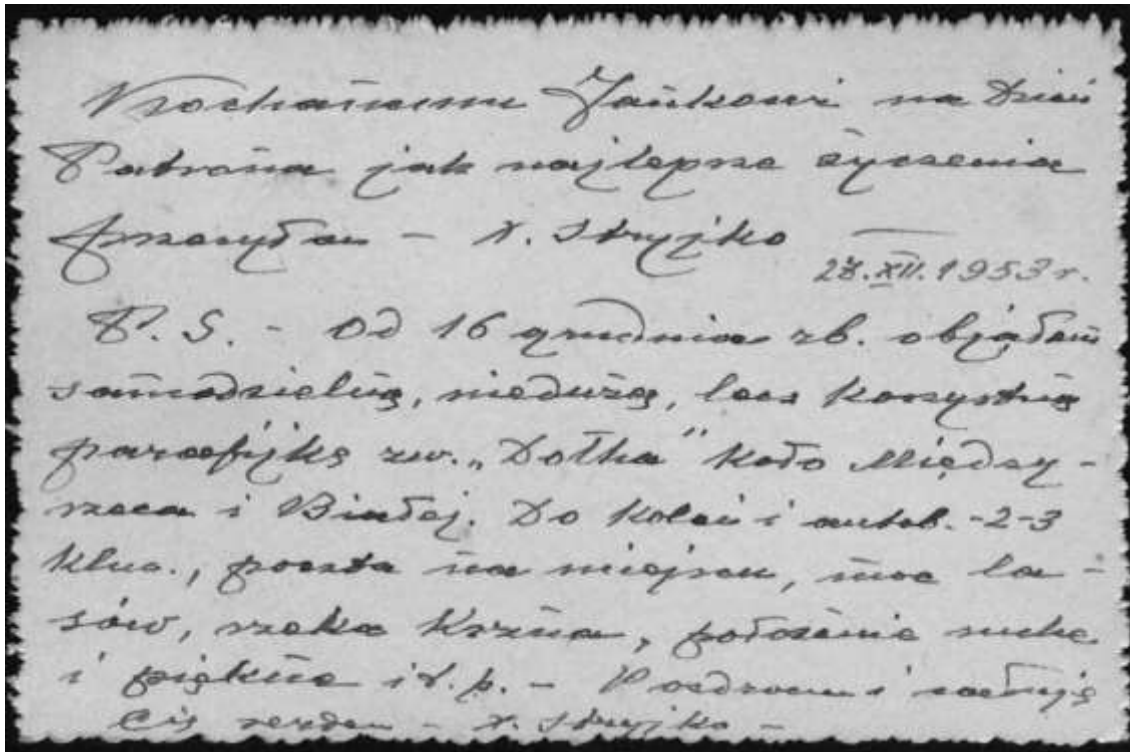 Kochanemu Jankowi na Dzień
Patrona jak najlepsze życzenia
przesyłam – x. Stryjko
28.XII.1953 r.
P.S. – Od 16 grudnia rb. objąłem
samodzielną, niedużą, lecz korzystną
parafijkę zw. „Dołha" koło Między-
rzeca i Białej. Do kolei i autob. -2-3
klm., poczta na miejscu, moc la-
sów, rzeka Krzna, położenie suche
i piękne i t.p. – Pozdrawiam i całuję
Cię serdecz – x. Stryjko –